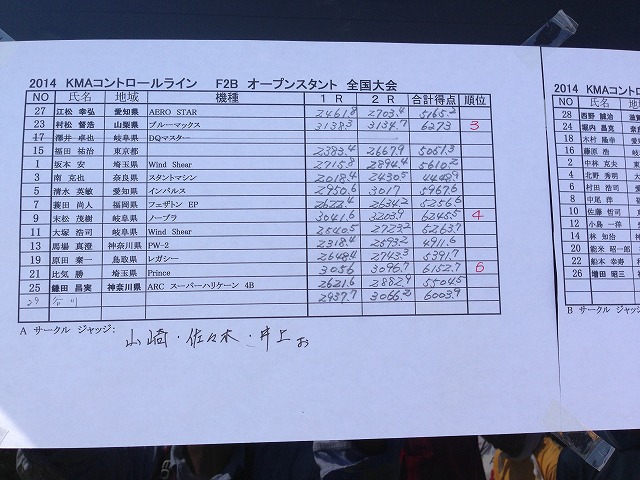 2014 KMAコントロールライン F2B オープンスタント 全国大会
NO 氏名 地域 機種 1R 2R 合計得点 順位
27 江松 幸弘 愛知県 AERO STAR 2461.8 2703.4 5165.2
23 村松 督浩 山梨県 ブルーマックス 3138.3 3134.7 6273 3
17 澤井 卓也 岐阜県 DQマスター
15 福田 祐治 東京都 2383.4 2667.9 5051.3
1 坂本 安 埼玉県 Wind Shear 2715.8 2894.4 5610.2
3 南 克也 奈良県 スタントマシン 2018.4 2430.5 4448.9
5 清水 英敏 愛知県 インパルス 2950.6 3017 5967.6
7 蓑田 尚人 福岡県 フェザトン EP 2622.4 2634.2 5256.6
9 末松 茂樹 岐阜県 ノーブラ 3041.6 3203.9 6245.5 4
11 大塚 浩司 岐阜県 Wind Shear 2540.5 2723.2 5263.7
13 馬場 真澄 神奈川県 PW-2 2318.4 2593.2 4911.6
19 原田 泰一 鳥取県 レガシー 2648.4 2743.3 5391.7
21 比気 勝 埼玉県 Prince 3056 3096.7 6152.7 6
25 鎌田 昌実 神奈川県 ARC スーパーハリケーン 4B 2621.6 2882.9 5504.5
29 2937.7 3066.2 6003.9
A サークル ジャッジ: 山崎・佐々木・井上
2014 KMAコントロ
NO 氏名
28 西野 誠治 滋賀
24 堀内 昌克 奈良
18 木村 隆幸
16 藤原 浩
2 中林 克夫
4 北野 秀明
6 村田 浩司
8 中尾 洋
10 佐藤 哲司
12 小島 一洋
14 林 知治
20 能米 昭一郎
22 船本 幸寿
26 増田 昭三
B サークル ジャッジ